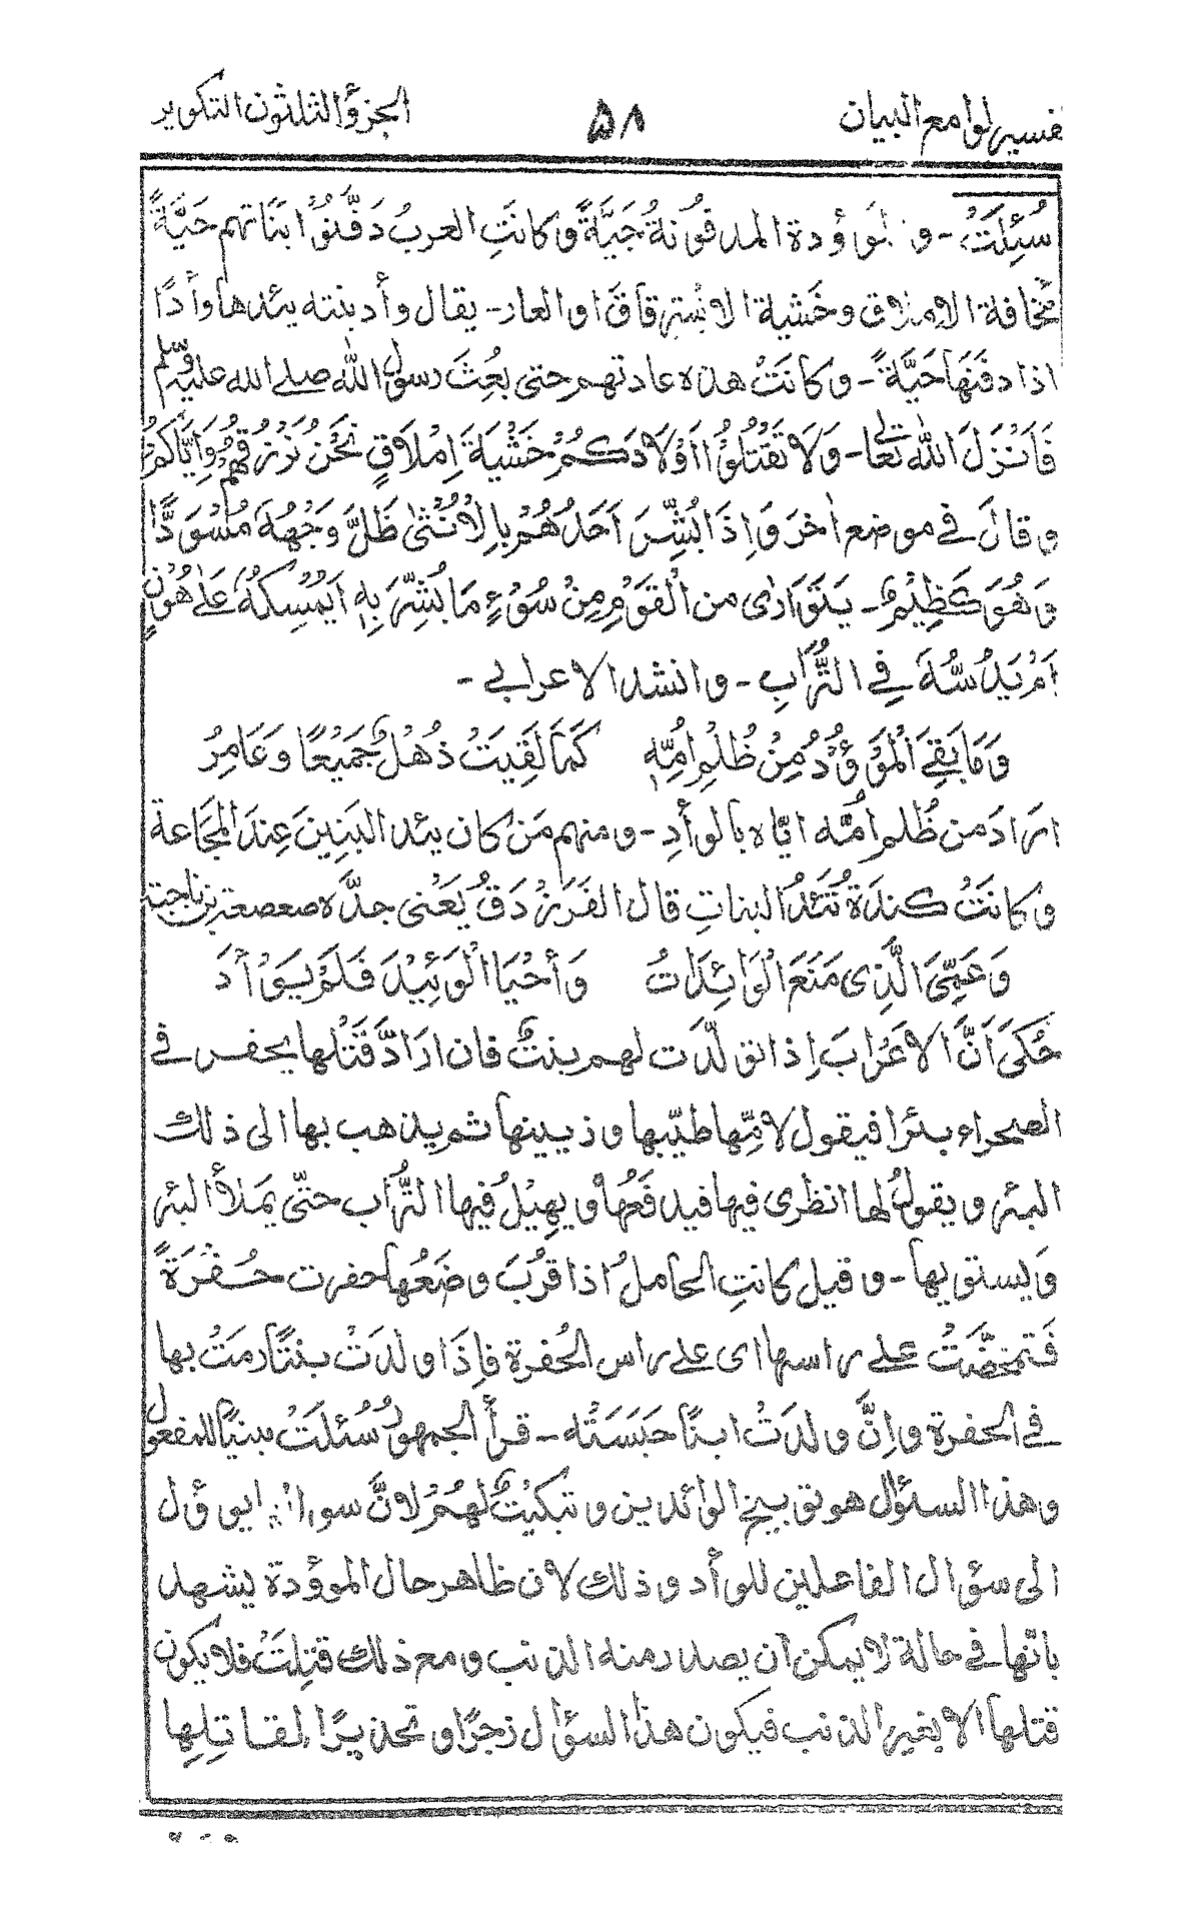 تفسير لوامع البيان ٥٨ الجزؤ الثلثون التكوير
سُئِلَتْ - و الموؤدة المدفونة حَيَّةً وكانَتِ العربُ دَفَنُوْا بَنَاتهم حَيَّةً
مخافة الاملاق وخَشية الاسترقاق او العار - يقال وأد بنته يئدها وأدًا
اذا دفَنَها حَيَّةً - وكانَتْ هذه عادتهم حتى بُعِثَ رسول الله صلے الله عليه وسلم
فَاَنْزَلَ اللّٰه تعالٰى - وَلَا تَقْتُلُوْا اَوْلَادَكُمْ خَشْيَةَ اِمْلَاقٍ نَحْنُ نَرْزُقُهُمْ وَاِيَّاكُمْ
وقالَ في موضع اٰخرَ وَاِذَا بُشِّرَ اَحَدُهُمْ بِالْاُنْثٰى ظَلَّ وَجْهُهٗ مُسْوَدًّا
وَهُوَ كَظِيْمٌ - يَتَوَارٰى من الْقَوْمِ مِنْ سُوْءِ مَا بُشِّرَ بِهٖ اَيُمْسِكُهٗ عَلٰے هُوْنٍ
اَمْ يَدُسُّهٗ فِي التُّرَابِ - وانشد الاعرابي -
وَمَا لَقِيَ الْمَوْؤُدُ مِنْ ظُلْمِ اُمِّهٖ كَمَا لَقِيَتْ ذُهْلٌ جَمِيْعًا وَعَامِرُ
ارَادَ من ظُلمِ اُمِّه ايّاه بالوأدِ - ومنهم مَن كان يئد البَنِينَ عِندَ المَجَاعة
وكانَتْ كندَةُ تَئدُ البناتِ قال الفَرَزْدَقُ يَعْنى جدَّه صعصعة بن ناجية
وَعَمِّيَ الَّذِى مَنَعَ الْوَائِدَاتُ وَأَحْيَا الْوَئِيْدَ فَلَمْ يَوْأَدَ
حُكَى اَنَّ الاَعْرَابَ اِذا تولّدَت لهم بنتٌ فان ارَادَّ قَتْلها يحفر في
الصحراء بئرًا فيقول لامِّها طيّبها وذيينها ثم يذهب بها الى ذلك
البئر ويقولُ لها انظرى فيها فيدفَعُها ويهيلُ فيها التُّرَاب حتّى يملأ البئر
وَيستوي بها - و قيل كانتِ الحاملُ اذا قرُبَ وضَعُها حفرت حُفْرَةً
فَتمخّضَتْ علے راسها اى علے راس الحُفرة فاِذَا ولدَتْ بنتًا رمَتْ بها
في الحفرة واِنَّ ولدَتْ ابنًا حَبَسَتْه - قرأ الجمهورُ سُئلَتْ مبنيًا للمفعول
وهذا السئوال هو توبيخ الوائدين وتبكيتٌ لهُمْ لانَّ سوا يوؤل
الى سؤال الفاعلين للوأد وذلك لان ظاهر حال الموؤدة يشهد
بانّها في حالة لا يمكن ان يصدر منه الذنب ومع ذلك قتِلَتْ فلا يكون
قتلها الا بغير الذنب فيكون هذا السؤال زجرًا وتحذيرًا لقاتِلِها